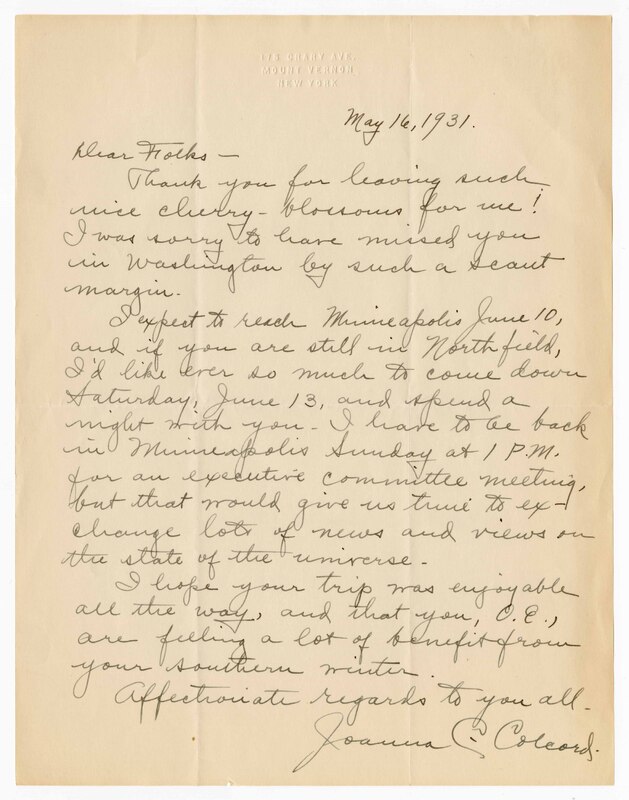 175 CRARY AVE.
MOUNT VERNON
NEW YORK
May 16, 1931.
Dear Folks —
Thank you for leaving such
nice cherry-blossoms for me!
I was sorry to have missed you
in Washington by such a scant
margin.
I expect to reach Minneapolis June 10,
and if you are still in Northfield,
I'd like ever so much to come down
Saturday, June 13, and spend a
night with you. I have to be back
in Minneapolis Sunday at 1 P.M.
for an executive committee meeting,
but that would give us time to ex-
change lots of news and views on
the state of the universe.
I hope your trip was enjoyable
all the way, and that you, O.E.,
are feeling a lot of benefit from
your southern winter.
Affectionate regards to you all.
Joanna C. Colcord.